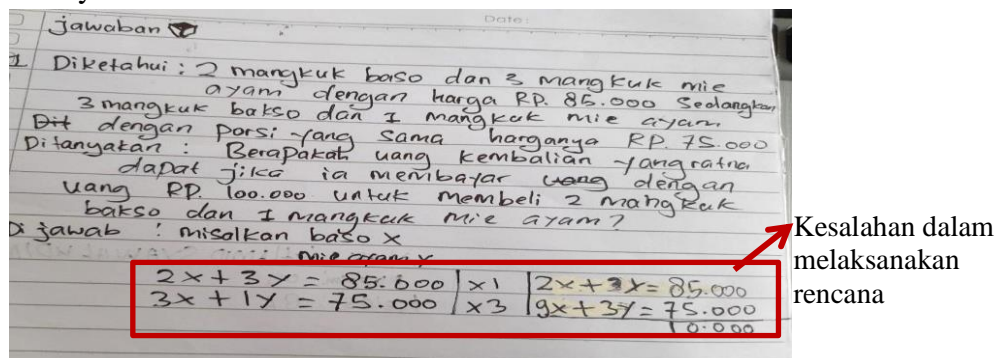 Date:
jawaban
1 Diketahui : 2 mangkuk baso dan 3 mangkuk mie
ayam dengan harga RP. 85.000 Sedangkan
3 mangkuk bakso dan 1 mangkok mie ayam
Dit dengan porsi yang sama harganya RP. 75.000
Ditanyakan : Berapakah uang kembalian yang ratna
dapat jika ia membayar uang dengan
uang RP. 100.000 untuk membeli 2 mangkuk
bakso dan 1 mangkuk mie ayam?
Di jawab : misalkan baso x
mie ayam y
2x + 3y = 85.000 | x1 | 2x + 3y = 85.000
3x + 1y = 75.000 | x3 | 9x + 3y = 75.000
10.000
Kesalahan dalam
melaksanakan
rencana